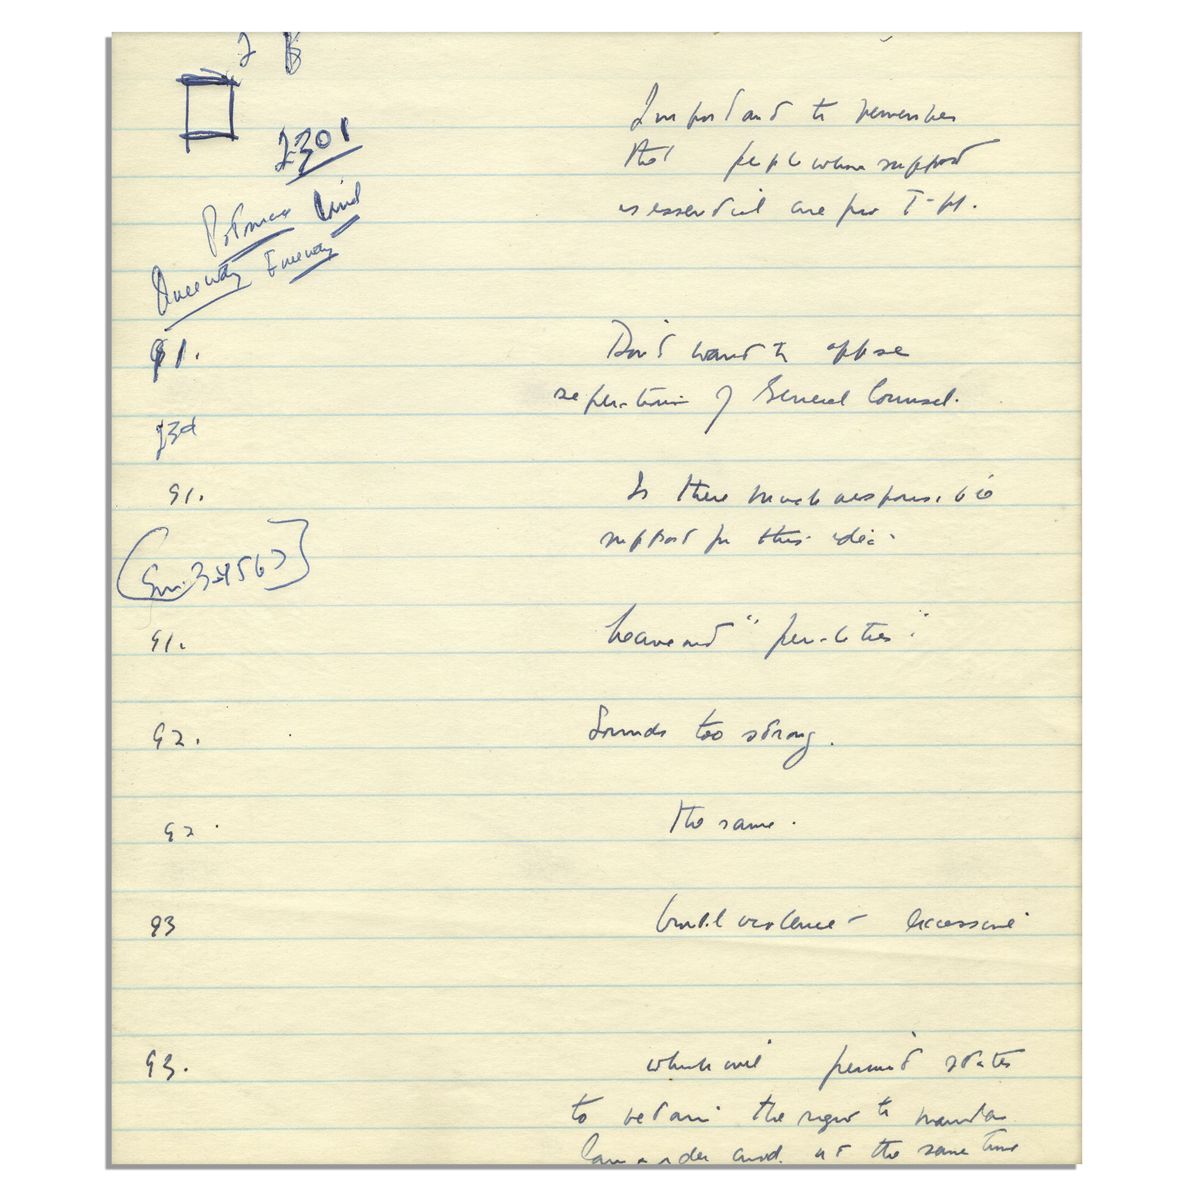 2 B
2301
Potomac
Freeway
Important to remember
that people whose support
is essential are pro T-H.
91. Don't want to oppose
separation of General Counsel.
91. Is there much responsible
support for this idea.
34567
91. "penalties"
92. Sounds too strong.
92. The same.
93 violence - excessive
93. which will permit states
to retain the right to maintain
law order and at the same time